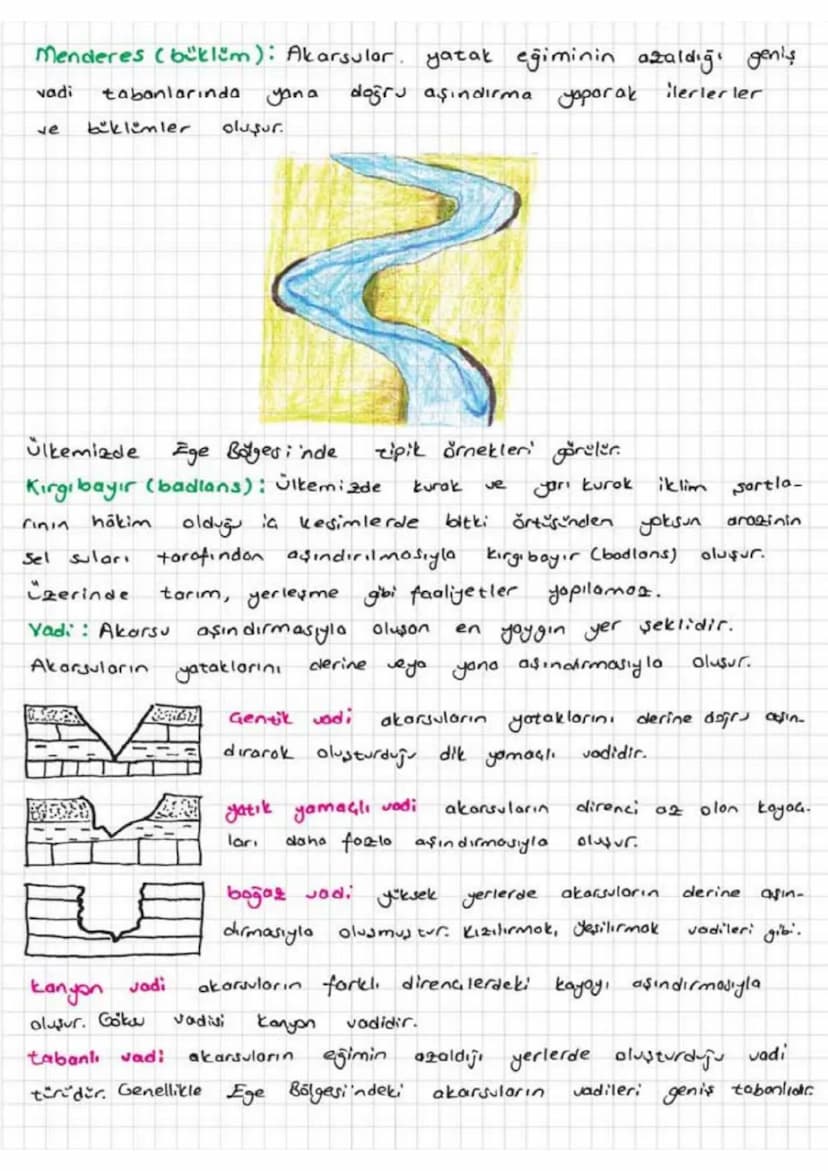 Menderes (büklüm): Akarsular. yatak eğiminin azaldığı geniş
vadi tabanlarında yana doğru aşındırma yaparak ilerlerler
ve büklümler oluşur.
Ülkemizde Ege Bölgesi'nde tipik örnekleri görülür.
Kırgıbayır (badlans): Ülkemizde kurak ve yarı kurak iklim şartla-
rının hâkim olduğu iç kesimlerde bitki örtüsünden yoksun arazinin
sel suları tarafından aşındırılmasıyla kırgıbayır (badlans) oluşur.
Üzerinde tarım, yerleşme gibi faaliyetler yapılamaz.
Vadi: Akarsu aşındırmasıyla oluşan en yaygın yer şeklidir.
Akarsuların yataklarını derine veya yana aşındırmasıyla oluşur.
Çentik vadi akarsuların yataklarını derine doğru aşın-
dırarak oluşturduğu dik yamaçlı vadidir.
yatık yamaçlı vadi akarsuların direnci az olan kayaç-
ları daha fazla aşındırmasıyla oluşur.
boğaz vadi yüksek yerlerde akarsuların derine aşın-
dırmasıyla oluşmuştur. Kızılırmak, Yeşilırmak vadileri gibi.
kanyon vadi akarsuların farklı dirençlerdeki kayayı aşındırmasıyla
oluşur. Göksu vadisi kanyon vadidir.
tabanlı vadi akarsuların eğimin azaldığı yerlerde oluşturduğu vadi
türüdür. Genellikle Ege Bölgesi'ndeki akarsuların vadileri geniş tabanlıdır.